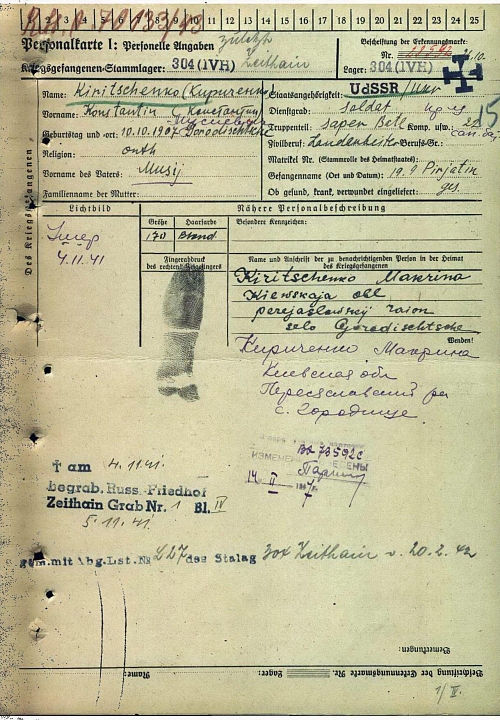 1 2 3 4 5 6 7 8 9 10 11 12 13 14 15 16 17 18 19 20 21 22 23 24 25
Personalkarte I: Personelle Angaben
Beschriftung der Erkennungsmarke
Kriegsgefangenen-Stammlager: 304 (IVH) Zeithain
Nr.
Lager: 304 (IVH)
Des Kriegsgefangenen
Name: Kiritschenko (Кириченко)
Staatsangehörigkeit: UdSSR / Ukr
Vorname: Konstantin
Dienstgrad: Soldat
Truppenteil: Saper Batl Komp. usw.:
Geburtstag und -ort: 10.10.1907 Gorodischtsche
Zivilberuf: Landarbeiter Berufs-Gr.:
Religion: orth
Matrikel Nr. (Stammrolle des Heimatstaates):
Vorname des Vaters: Musij
Gefangennahme (Ort und Datum): 19.9 Pirjatin
Familienname der Mutter:
Ob gesund, krank, verwundet eingeliefert: ges.
Lichtbild
Nähere Personalbeschreibung
Größe
Haarfarbe
Besondere Kennzeichen:
170
blond
Умер
4.11.41
Fingerabdruck
des rechten Zeigefingers
Name und Anschrift der zu benachrichtigenden Person in der Heimat
des Kriegsgefangenen
Kiritschenko Makrina
Kiewskaja obl
perejaslawskij raion
selo Gorodischtsche
Wenden!
Кириченко Макрина
Киевская обл
Переяславский р-н
с. Городище.
ИЗМЕНЕНИЯ
14 II 194
† am 4.11.41.
begrab. Russ. Friedhof
Zeithain Grab Nr. 1 Bl. IV
5.11.41.
gem. mit Abg. Lst. № 227 des Stalag 304 Zeithain v. 20.2.42
Bemerkungen:
Beschriftung der Erkennungsmarke Nr.
Lager:
Name:
1/II.